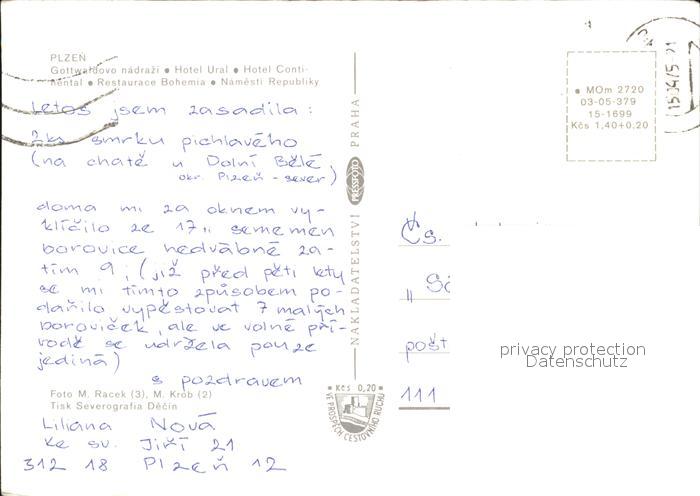 PLZEŇ
Gottwaldovo nádraží ● Hotel Ural ● Hotel Conti-
nental ● Restaurace Bohemia ● Náměstí Republiky
Letos jsem zasadila:
2ks smrku pichlavého
(na chatě u Dolní Bělé
okr. Plzeň - sever)
doma mi za oknem vy-
klíčilo ze 17
borovice hedvábné za-
tím 9; (již před pěti lety
se mi tímto způsobem po-
dařilo vypěstovat 7 malých
boroviček, ale ve volné pří-
rodě se udržela pouze
jediná)
s pozdravem
Foto M. Racek (3), M. Krob (2)
Tisk Severografia Děčín
Liliana Nová
Ke sv. Jiří 21
312 18 Plzeň 12
NAKLADATELSTVÍ PRESSFOTO PRAHA
● Kčs 0,20 ●
VE PROSPĚCH CESTOVNÍHO RUCHU
● MOm 2720
03-05-379
15-1699
Kčs 1,40+0,20
Čs.
pošt
111
privacy protection
Datenschutz